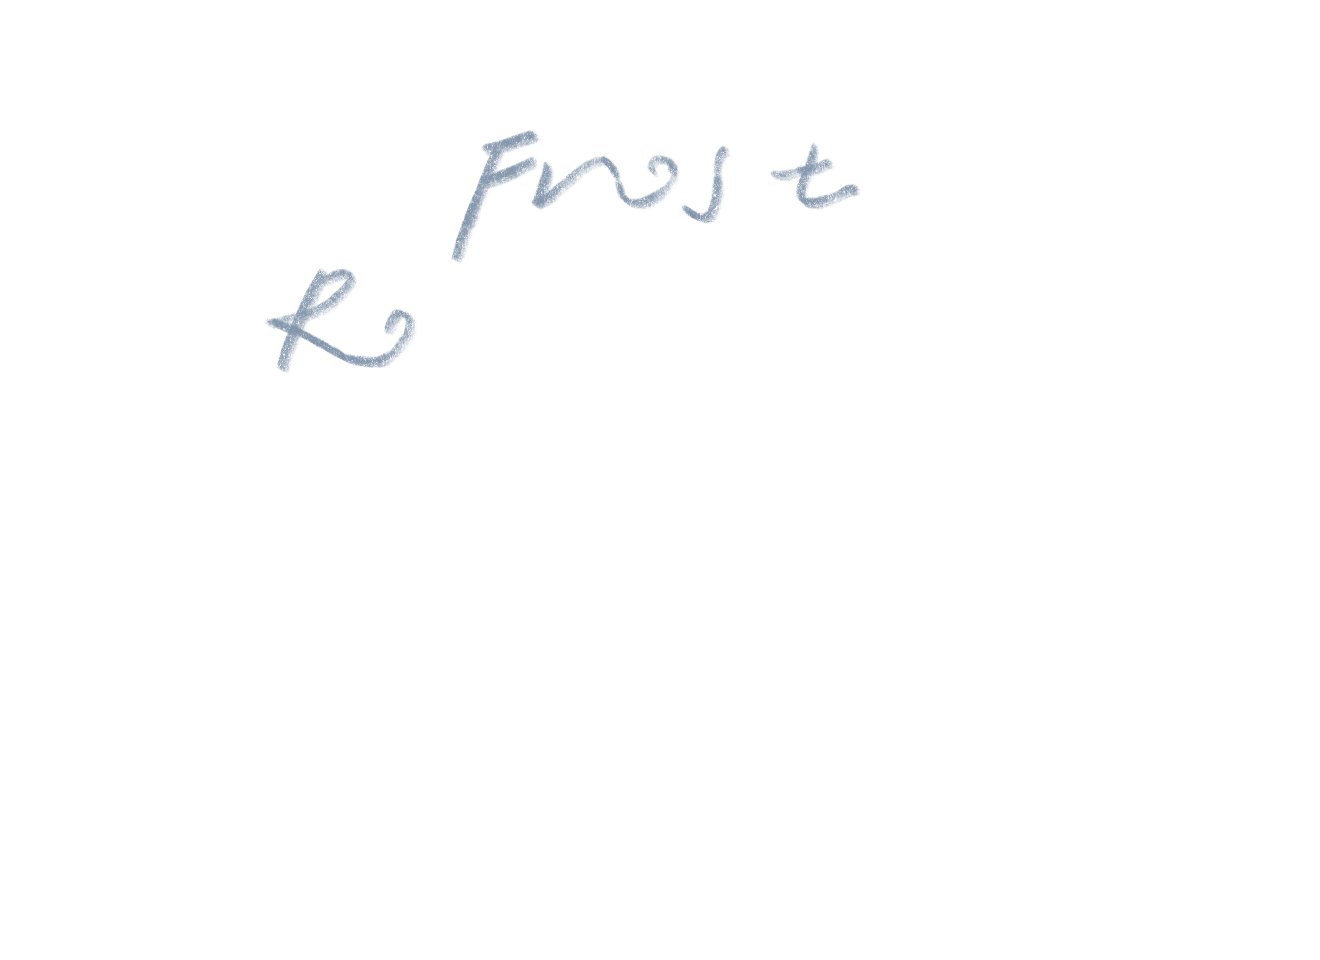 Frost
Ro